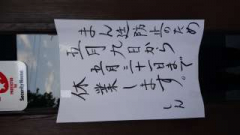 まん延防止のため
五月九日から
五月三十一日まで
休業します。
しん